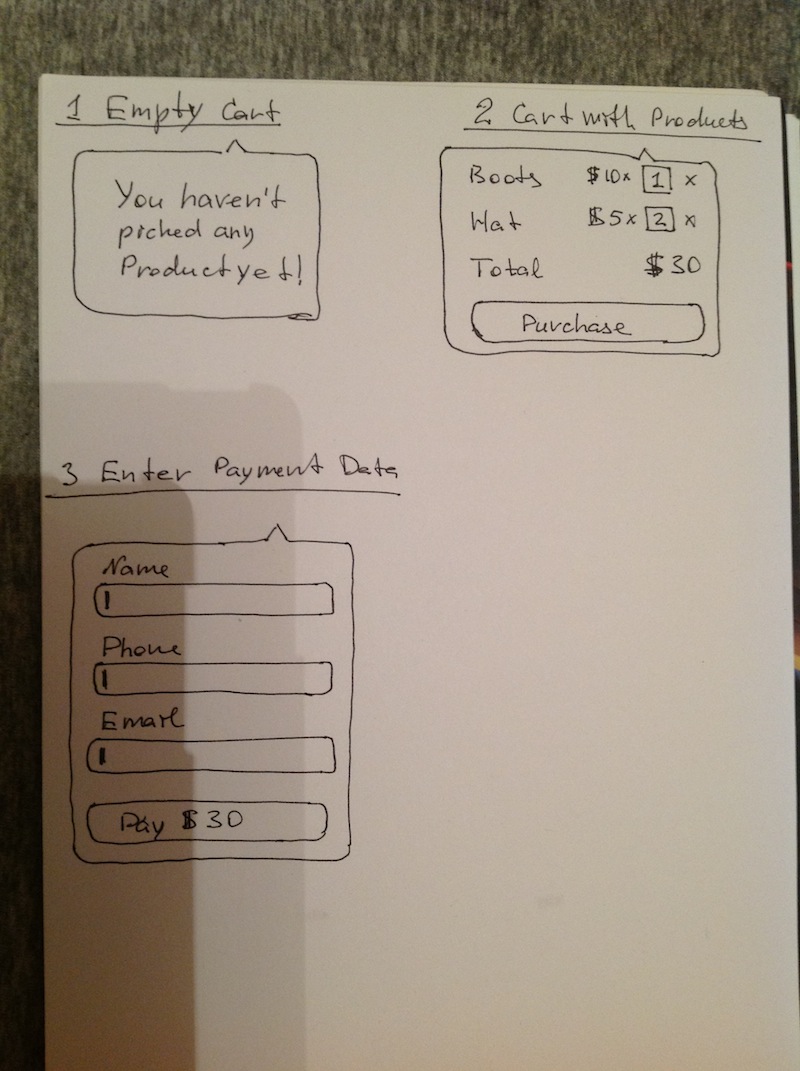 1 Empty Cart
You haven't
picked any
Product yet!
2 Cart with Products
Boots $10x 1 x
Hat $5x 2 x
Total $30
Purchase
3 Enter Payment Data
Name
Phone
Email
Pay $30